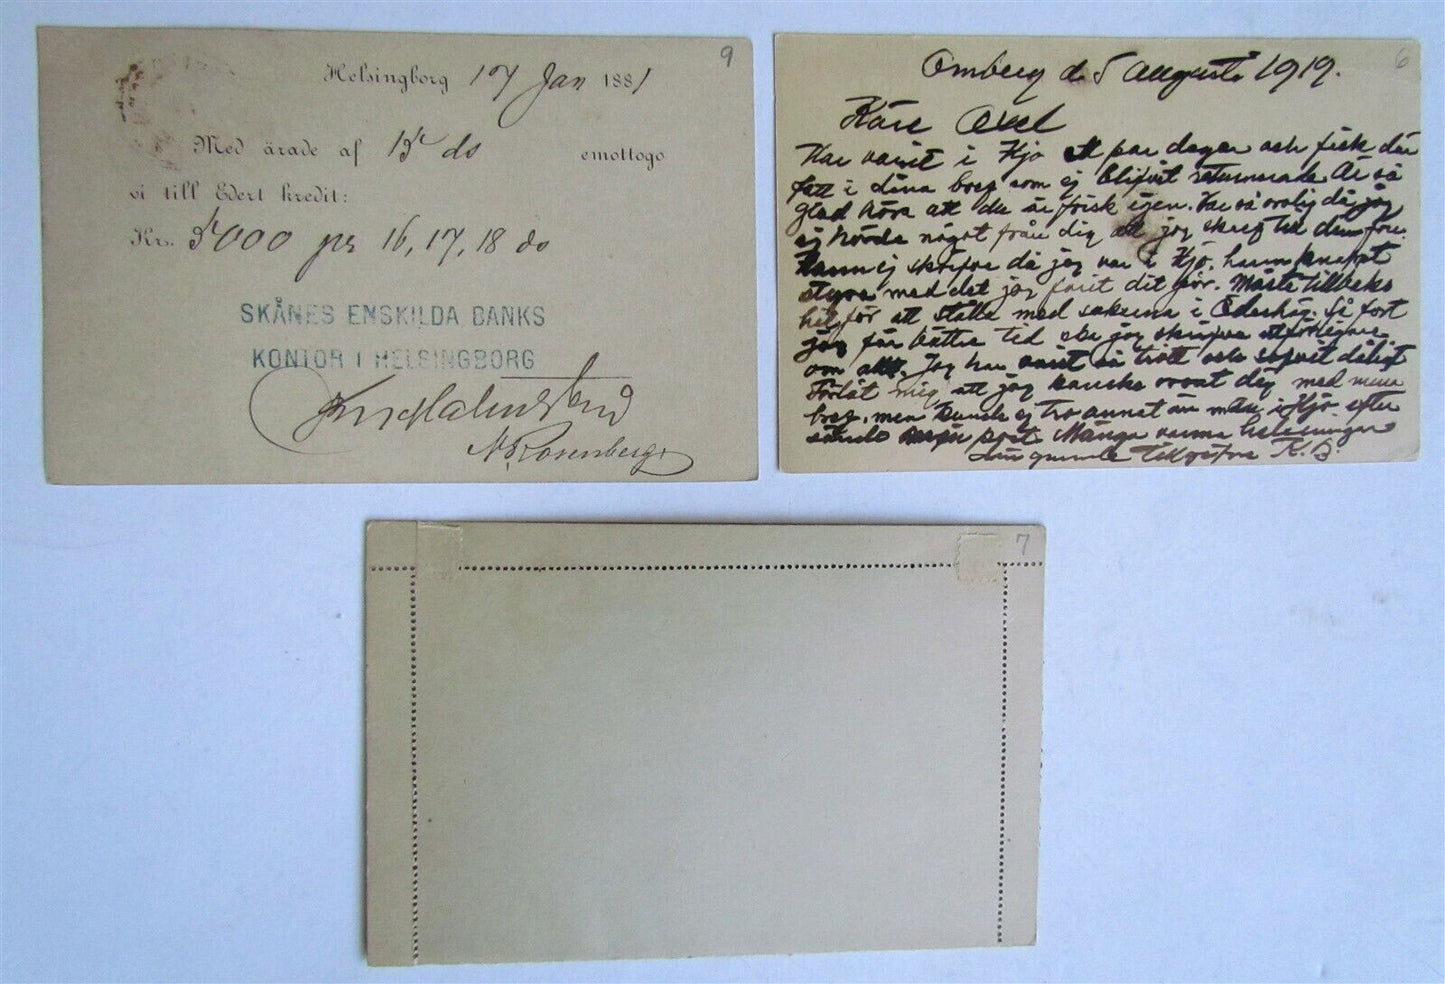 9
Helsingborg 17 Jan 1881
Med ärade af 15 ds emottogo
vi till Edert kredit:
Kr. 5000 pr 16, 17, 18 ds
SKÅNES ENSKILDA BANKS
KONTOR I HELSINGBORG
N Rosenberg
6
Omberg d. 5 Augusti 1919.
Käre Axel
Har varit i Hjo ett par dagar och fick där
fatt i dina bref som ej blifvit returnerade. Är så
glad höra att du är frisk igen. Var så orolig då jag
ej hörde något från dig att jag skref till
ej skrifva då jag var i Hjo, hann knappt
styra med det jag farit dit för. Måste tillbaka
hit för att ställa med sakerna i Ödeshög. Så fort
jag får bättre tid ska jag skrifva
om allt. Jag har varit så trött och sofvit dåligt
Förlåt mig att jag kanske oroat dig med mina
bref, men kunde ej tro annat än
post. Många varma helsningar
din gamle tillgifne K. B.
7